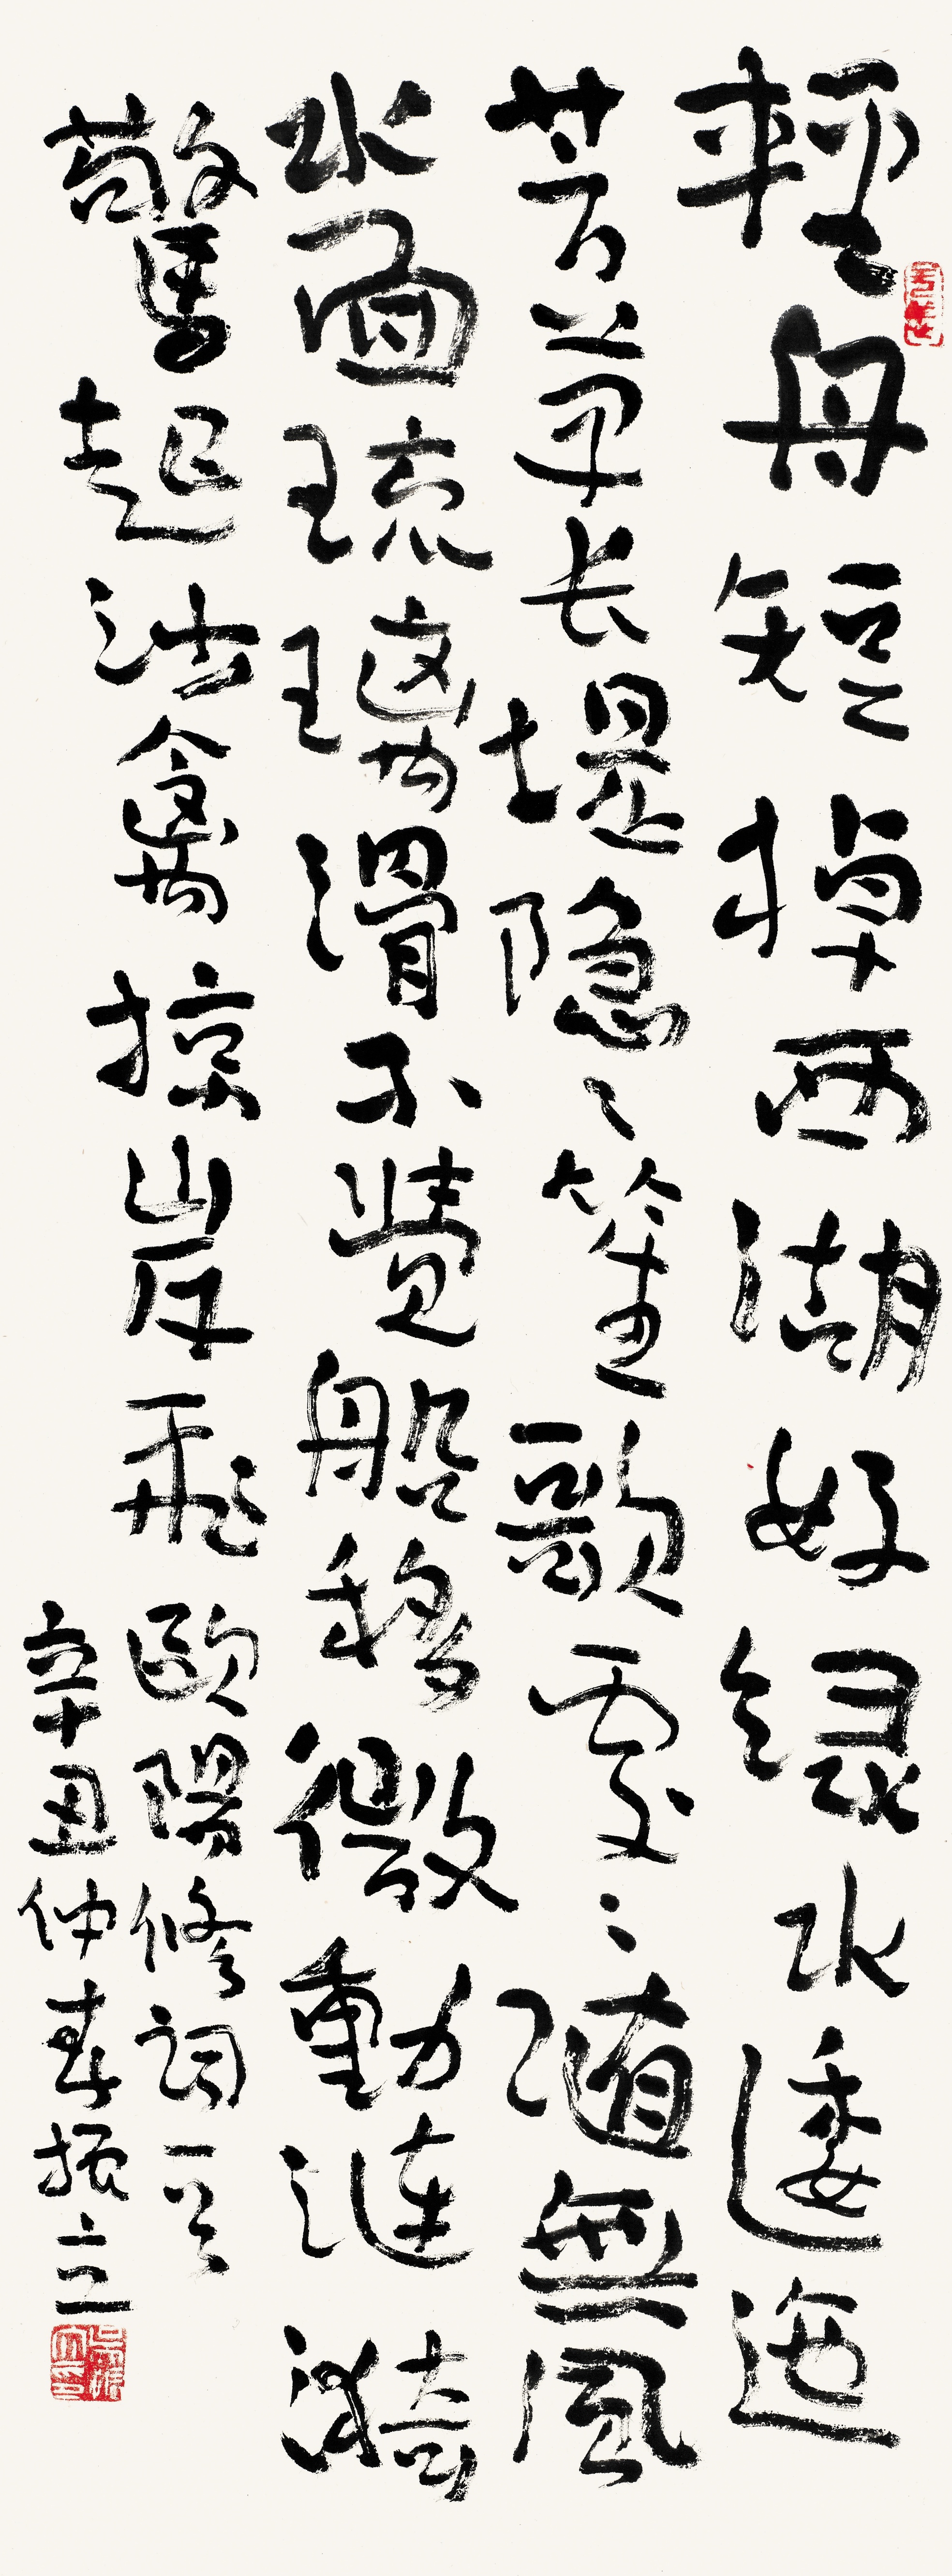 輕舟短棹西湖好綠水逶迤
芳草长堤隐〻笙歌處〻随無風
水面琉璃滑不觉船移微動漣漪
驚起沙禽掠岸飛 歐陽修词一首
辛丑仲春振立